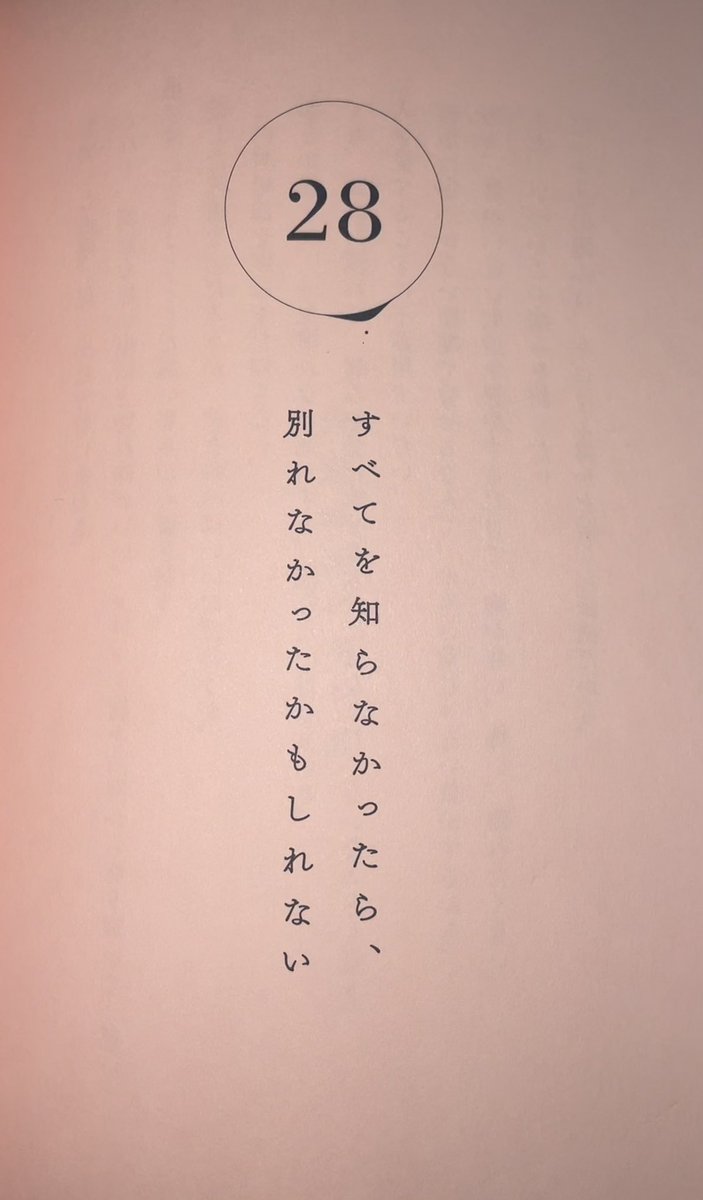 28
すべてを知らなかったら、
別れなかったかもしれない